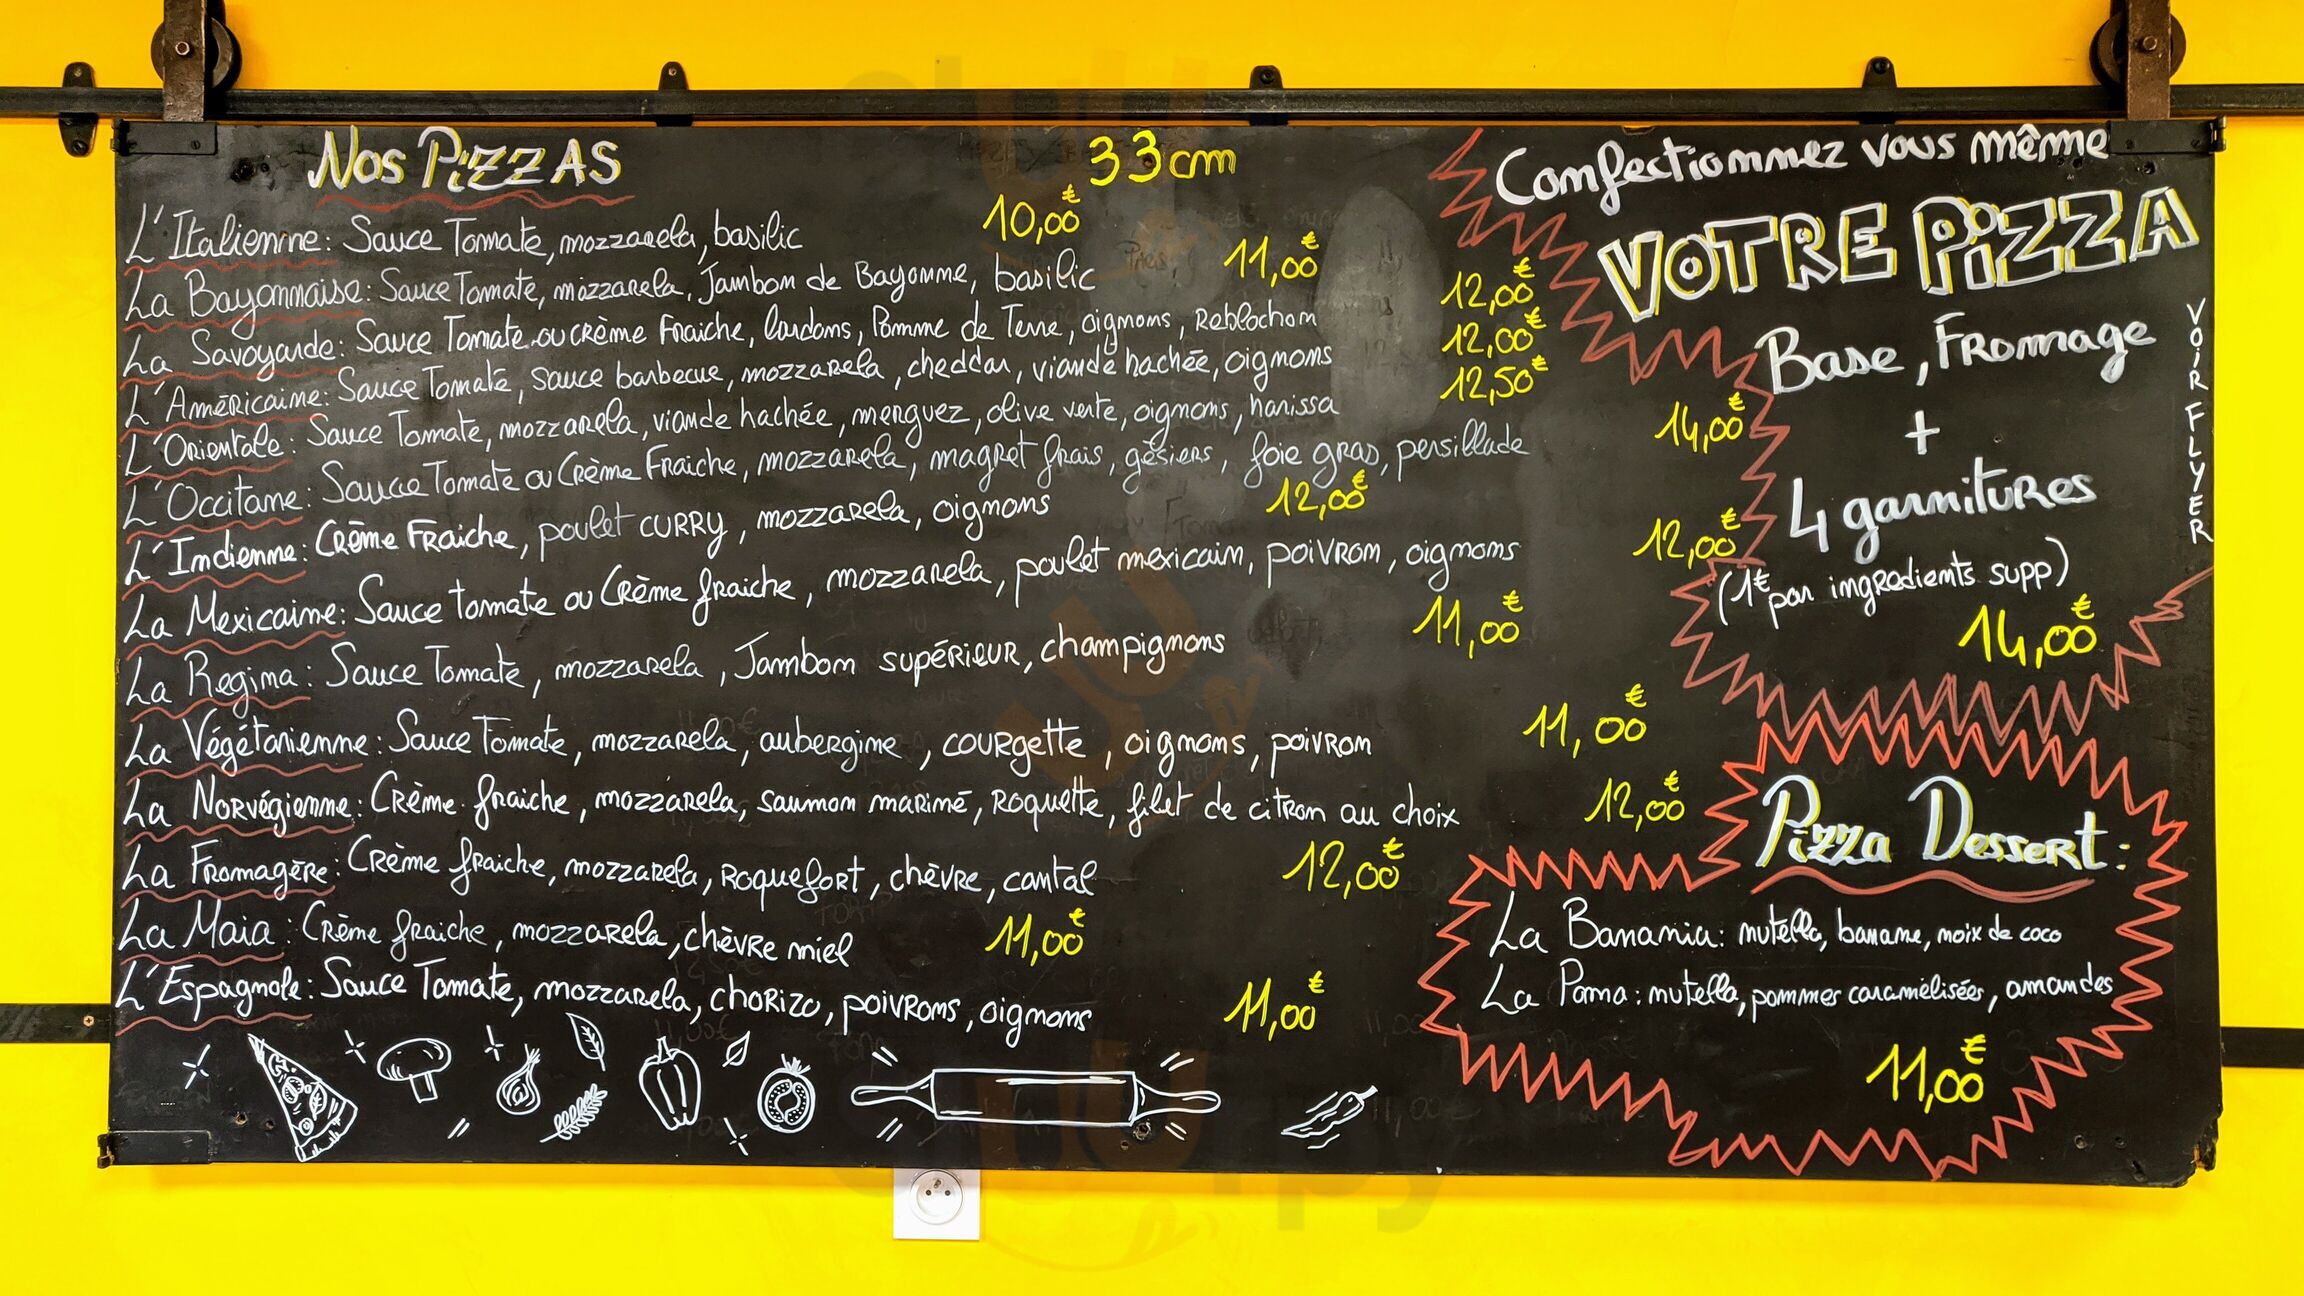 Nos PizzAS 33cm
L'Italienne: Sauce Tomate, mozzarela, basilic 10,00€
La Bayonnaise: Sauce Tomate, mozzarela, Jambon de Bayonne, basilic 11,00€
La Savoyarde: Sauce Tomate ou crème Fraiche, lardons, Pomme de Terre, oignons, Reblochon 12,00€
L'Américaine: Sauce Tomate, sauce barbecue, mozzarela, cheddar, viande hachée, oignons 12,00€
L'Orientale: Sauce Tomate, mozzarela, viande hachée, merguez, olive verte, oignons, harissa 12,50€
L'Occitane: Sauce Tomate ou Crème Fraiche, mozzarela, magret frais, gésiers, foie gras, persillade 14,00€
L'Indienne: Crème Fraiche, poulet CURRY, mozzarela, oignons 12,00€
La Mexicaine: Sauce tomate ou Crème fraiche, mozzarela, poulet mexicain, poivron, oignons 12,00€
La Regina: Sauce Tomate, mozzarela, Jambon supérieur, champignons 11,00€
La Végétarienne: Sauce Tomate, mozzarela, aubergine, courgette, oignons, poivron 11,00€
La Norvégienne: Crème fraiche, mozzarela, saumon mariné, Roquette, filet de citron au choix 12,00€
La Fromagère: Crème fraiche, mozzarela, Roquefort, chèvre, cantal 12,00€
La Maia: Crème fraiche, mozzarela, chèvre miel 11,00€
L'Espagnole: Sauce Tomate, mozzarela, chorizo, poivrons, oignons 11,00€
Confectionnez vous même
VOTRE PiZZA
Base, Fromage
+
4 garnitures
(1€ par ingredients supp)
14,00€
VOiR FLYER
Pizza Dessert:
La Banania: nutella, banane, noix de coco
La Poma: nutella, pommes caramélisées, amandes
11,00€